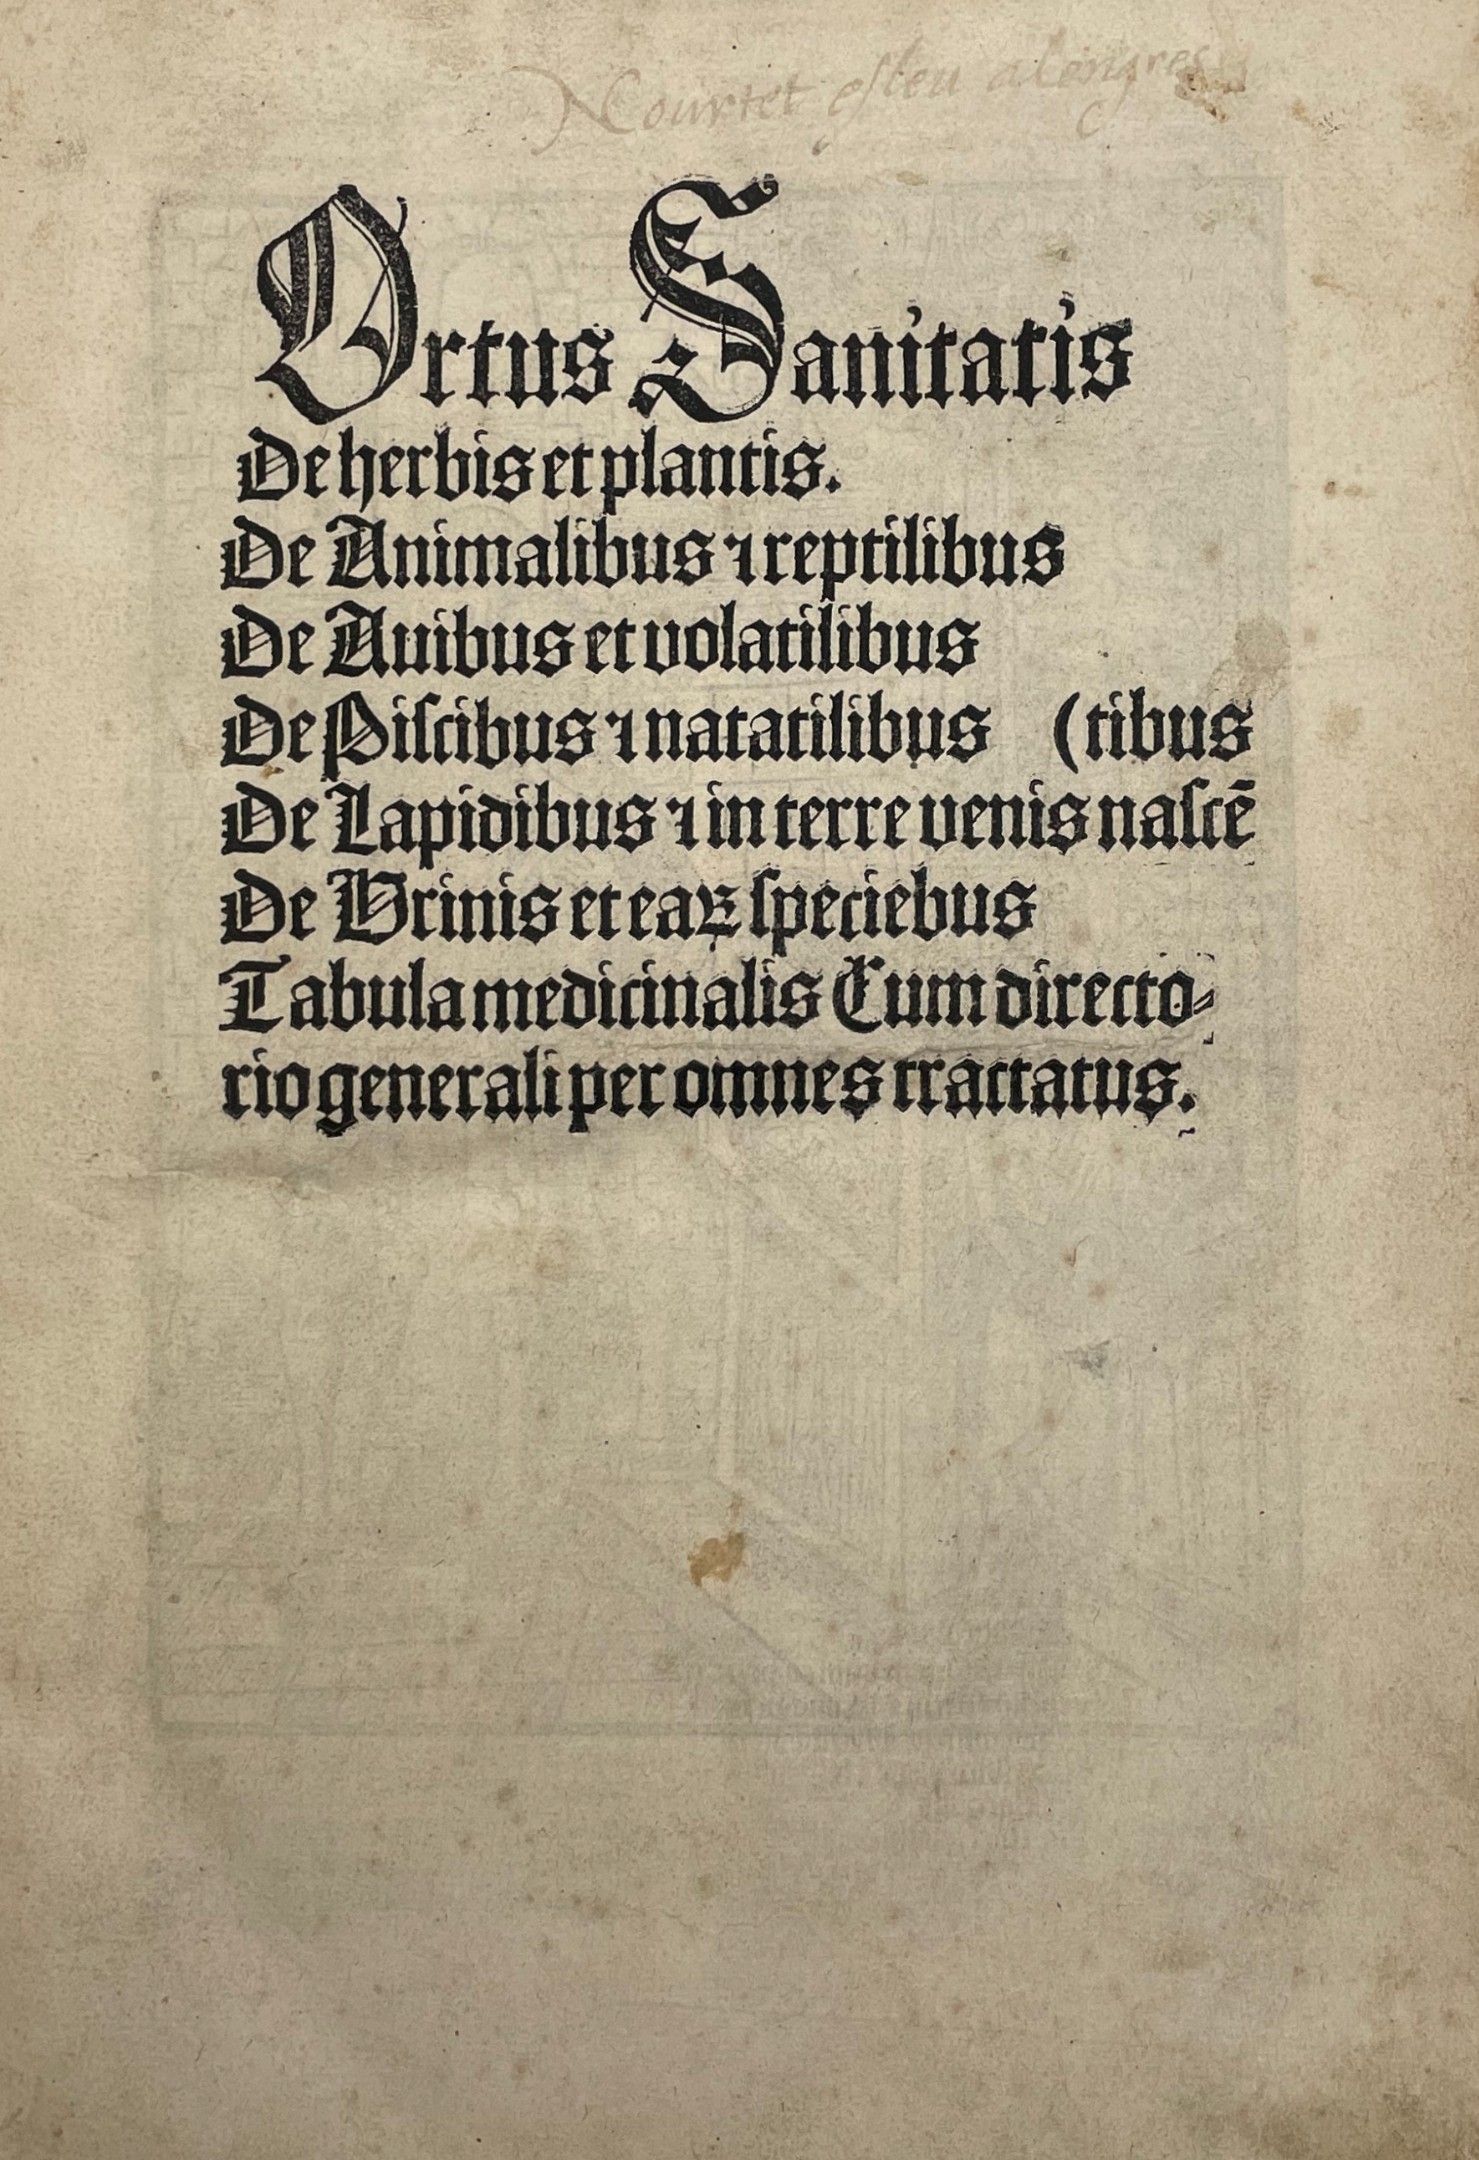 NCourtet esleu a Lengres
Ortus Sanitatis
De herbis et plantis.
De Animalibus ⁊ reptilibus
De Auibus et volatilibus
De Piſcibus ⁊ natatilibus (tibus
De Lapidibus ⁊ in terre venis naſcē
De Vrinis et eaꝝ ſpeciebus
Tabula medicinalis Cum directo⸗
rio generali per omnes tractatus.